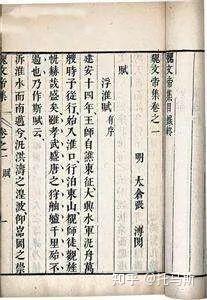 魏文帝集目錄終
魏文帝集卷之一
明 太倉張 溥閱
賦
浮淮賦 有序
建安十四年王師自譙東征大興水軍汎舟萬
艘時予從行始入淮口行泊東山睹師徒觀旌
帆赫哉盛矣雖孝武盛唐之狩舳艫千里殆不
過也乃作斯賦云
泝淮水而南邁兮汎洪濤之湟波仰嵓岡之崇
魏文帝集 卷之一 賦
知乎 @托马斯